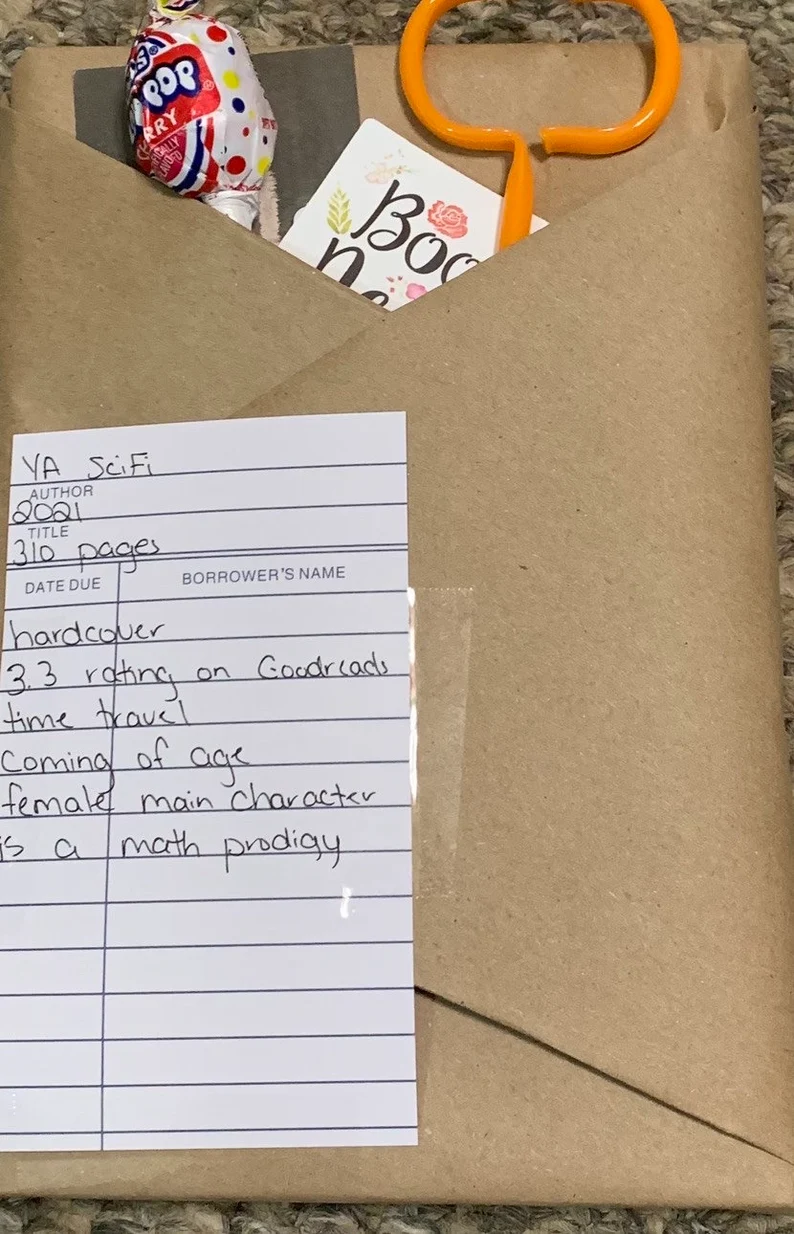 POP
RRY
Boo
Ne
YA SciFi
AUTHOR
2021
TITLE
310 pages
DATE DUE BORROWER'S NAME
hardcover
3.3 rating on Goodreads
time travel
Coming of age
female main character
is a math prodigy